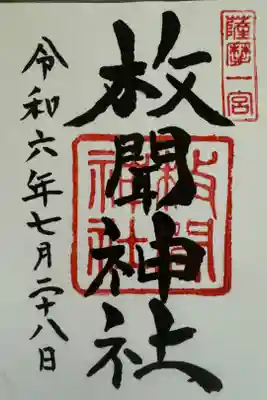 薩摩一宮
枚聞神社
枚聞神社
令和六年七月二十八日